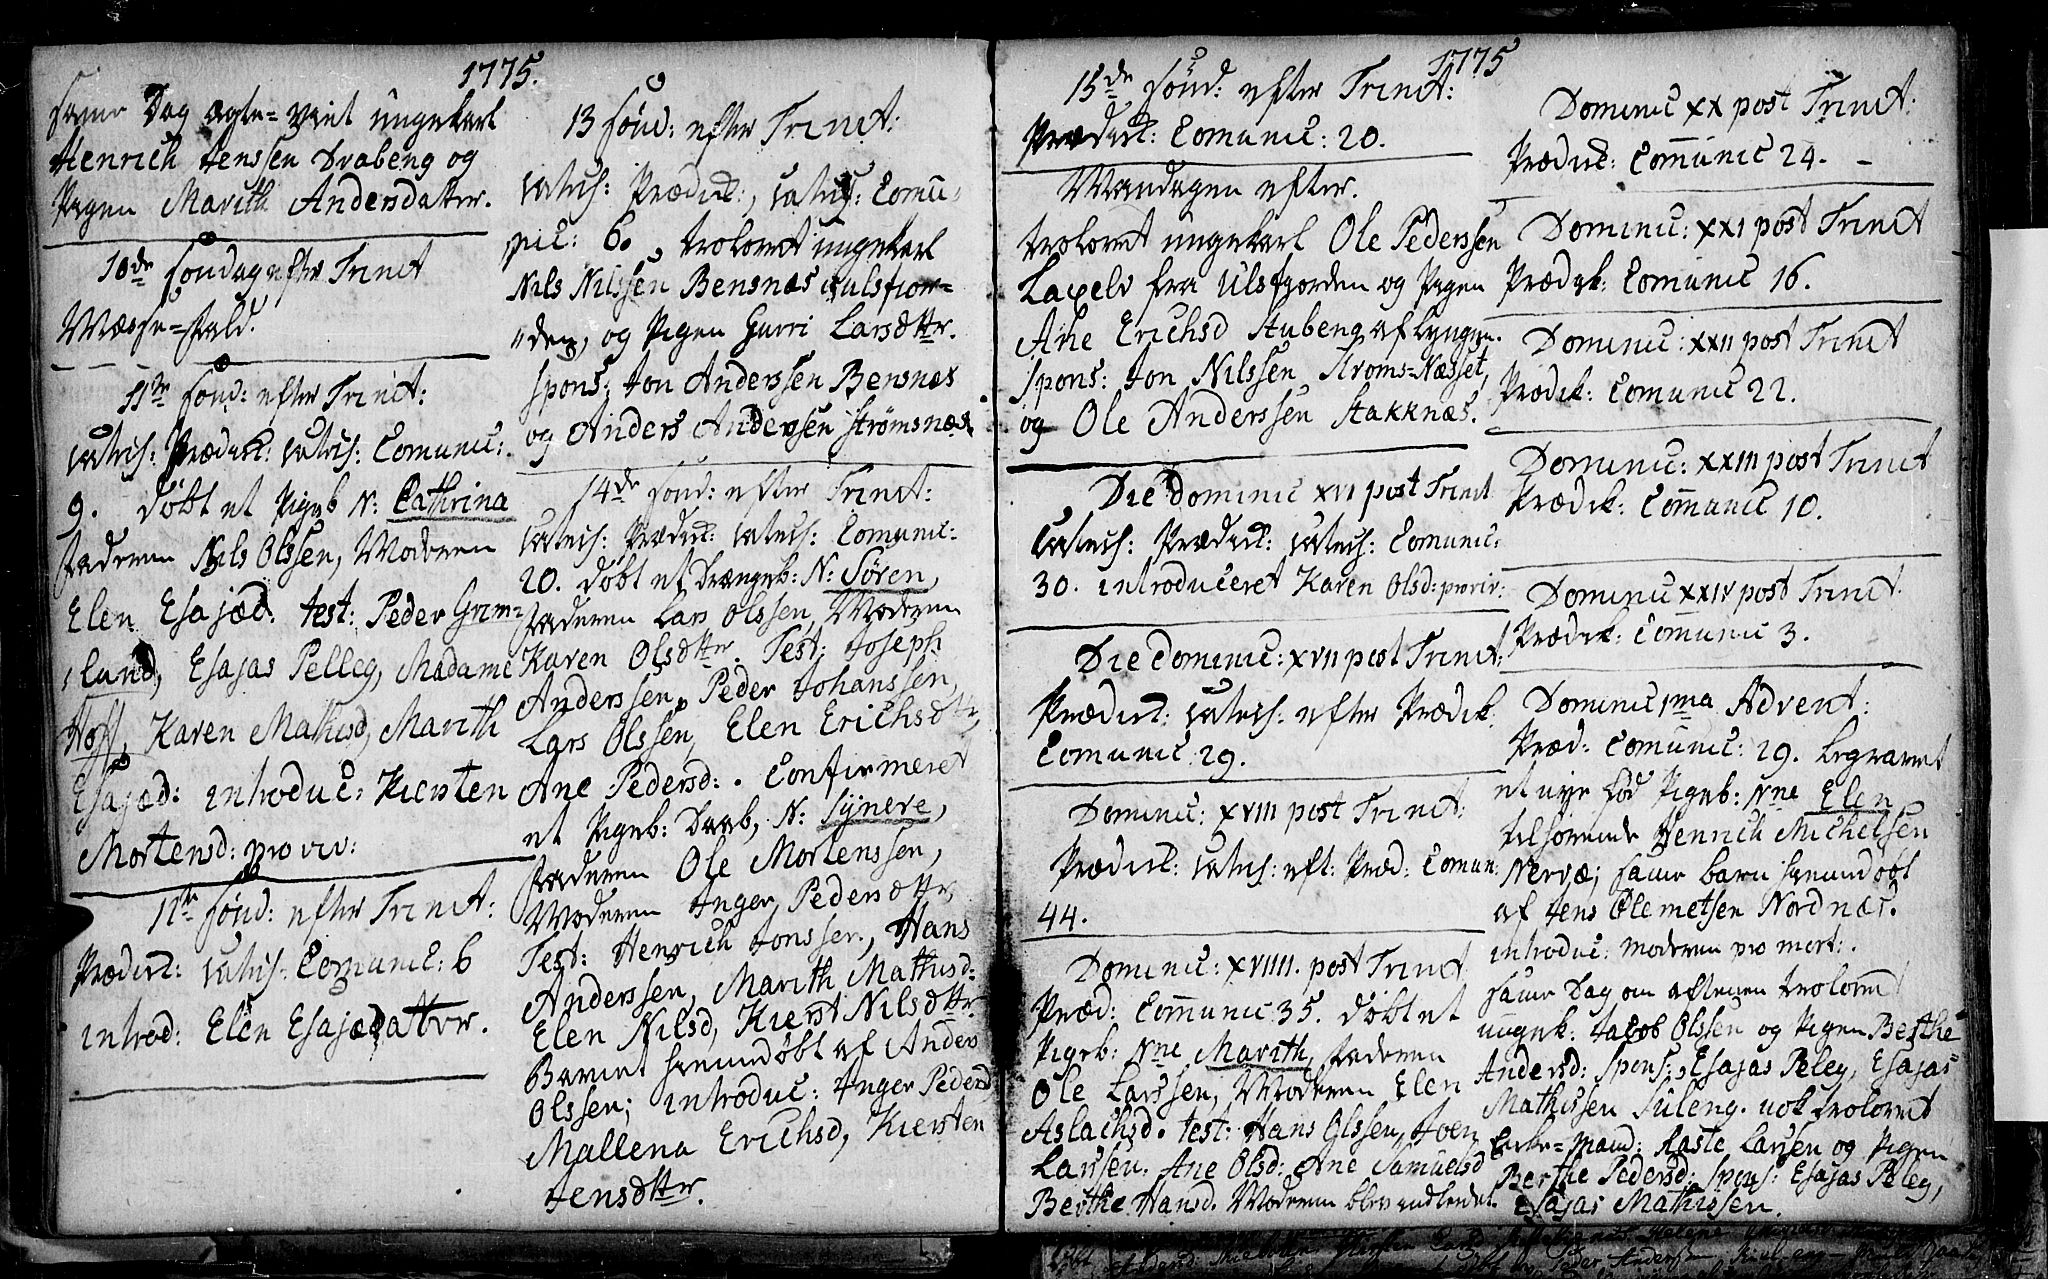 1775.
samme Dag ægte-viet ungekarl
Henrich Jenssen Drabeng og
Pigen Marith Andersdatter.
10de søndag efter Trinit
Messe-fald.
11te sønd: efter Trinit:
Catech: Prædick: Catech: Comunic:
9. døbt et Pigeb N: Cathrina
Faderen Nils Olssen, Moderen
Elen Esajæd. test: Peder Grøn-
lund, Esajas Pelleg, Madame
Hoff, Karen Mathisd, Marith
Esajæd: introduc: Kiersten
Mortensd: pro viv:
12te sønd: efter Trinit:
Prædick: Catech: Comunic: 6
introd: Elen Esajædatter.
13 sønd: efter Trinit:
Catech: Prædick:, Catech: Comu-
nic: 6. trolovet ungekarl
Nils Nilssen Bensnæs i ulsfior-
den, og Pigen Gurri Larsdttr.
spons: Jon Anderssen Bensnæs
og Anders Anderssen Strømsnæs.
14de sønd: efter Trinit:
Catech: Prædick: Catech: Comunic:
20. døbt et drængeb: N: Sören,
Faderen Lars Olssen, Moderen
Karen Olsdttr. Test: Joseph
Anderssen, Peder Johanssen,
Lars Olssen, Elen Erichsdttr,
Ane Pedersd: . Confirmeret
et Pigeb: Daab, N: Synere,
Faderen Ole Mortenssen,
Moderen Inger Pedersdttr,
Test: Henrich Jonssen, Hans
Anderssen, Marith Mathisd:
Elen Nilsd, Kierst Nilsdttr
Barnet hiemdøbt af Anders
Olssen; introduc: Inger Pedersd
Mallena Erichsd, Kiersten
Jensdttr.
1775
15de sønd: efter Trinit:
Prædick: Comunic: 20.
Mandagen efter.
trolovet ungekarl Ole Pederssen
Laxelv fra Ulsfjorden og Pigen
Ane Erichsd Stubeng af Lyngen.
spons: Jon Nilssen Stroms-Næsset,
og Ole Anderssen Stakknæs.
Die Dominic XVI post Trinit
Catech: Prædick: Catech: Comunic:
30. introduceret Karen Olsd: pro viv:
Die Dominic: XVII post Trinit:
Prædick: Catech: efter Prædik
Comunic: 29.
Dominic: XVIII post Trinit:
Prædick: Catech: eft: Præd: Comun:
44.
Dominic: XVIIII. post Trinit
Præd: Communic 35. døbt et
Pigeb: Nne Marith, Faderen
Ole Larssen, Moderen Elen
Aslachsd. test: Hans Olssen, Joen
Larssen. Ane Olsd: Ane Samuelsd
Berthe Hansd. Moderen blev indledet.
Dominic XX post Trinit:
Prædick: Comunic 24. -
Dominic: XXI post Trinit
Prædik: Comunic 16.
Dominic: XXII post Trinit
Prædik: Comunic 22.
Dominic: XXIII post Trinit
Prædik: Comunic 10.
Dominic XXIV post Trinit.
Prædik: Comunic 3.
Dominic 1ma Advent:
Præd: Comunic: 29. begravet
et nye fød Pigeb: Nne Elen
tilhørende Henrich Michelsen
Nervæ; samme barn hiemdøbt
af Jens Olemetsen Nordnæs.
introduc: moderen pro mort:.
samme Dag om aftenen trolovet
ungek: Jacob Olssen og Pigen Berthe
Andersd: spons: Esajas Peleg, Esajas
Mathissen Süleng. nok trolovet
Enke-mand: Raste Larsen og Pigen
Berthe Pedersd: spons: Esajas Peleg,
Esajas Mathissen.